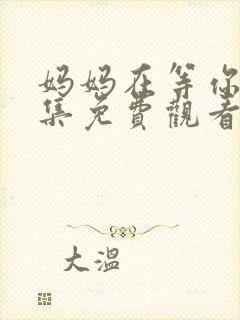 妈妈在等你
集免費觀看
大溫